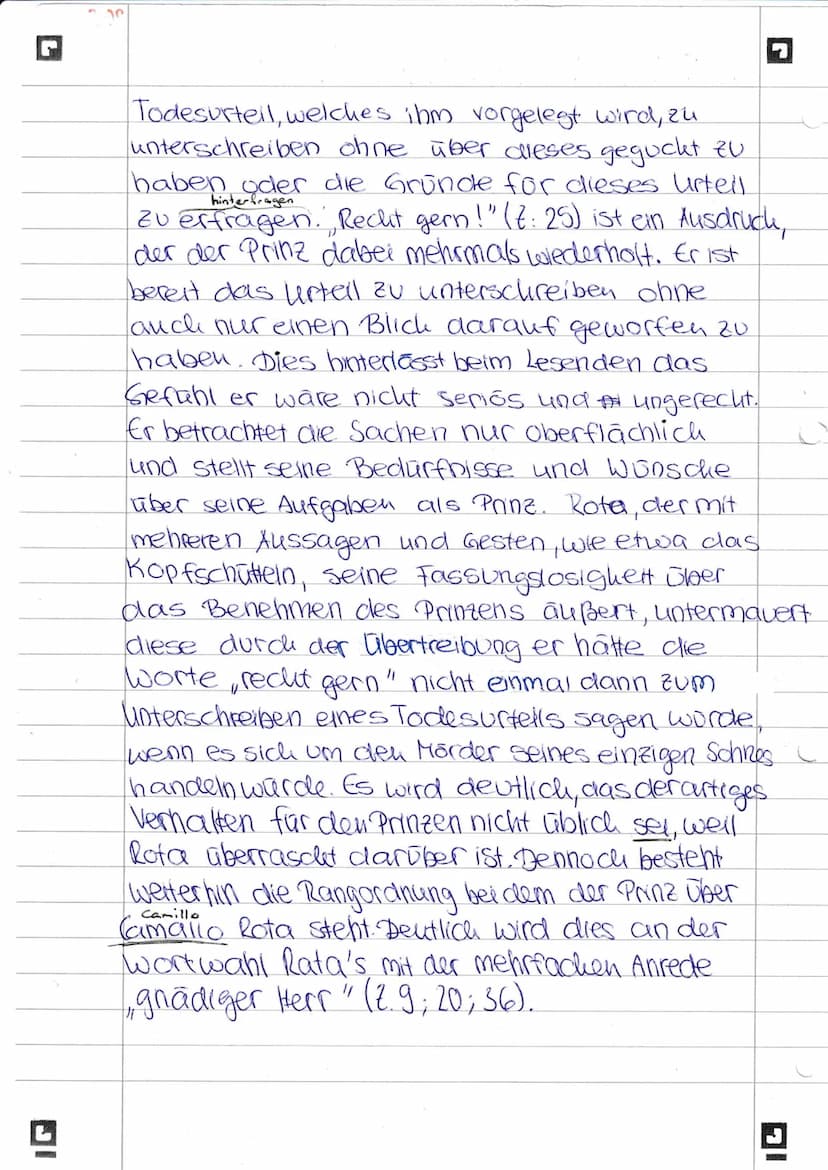 Todesurteil, welches ihm vorgelegt wird, zu
unterschreiben ohne über dieses geguckt zu
haben oder die Gründe für dieses Urteil
hinterfragen
zu erfragen. „Recht gern!" (Z. 25) ist ein Ausdruck,
der der Prinz dabei mehrmals wiederholt. Er ist
bereit das Urteil zu unterschreiben ohne
auch nur einen Blick darauf geworfen zu
haben. Dies hinterlässt beim Lesenden das
Gefühl er wäre nicht seriös und ungerecht.
Er betrachtet die Sachen nur oberflächlich
und stellt seine Bedürfnisse und Wünsche
über seine Aufgaben als Prinz. Rota, der mit
mehreren Aussagen und Gesten, wie etwa das
Kopfschütteln, seine Fassungslosigkeit über
das Benehmen des Prinzens äußert, untermauert
diese durch der Übertreibung er hätte die
Worte „recht gern" nicht einmal dann zum
Unterschreiben eines Todesurteils sagen würde,
wenn es sich um den Mörder seines einzigen Sohnes
handeln würde. Es wird deutlich, das derartiges
Verhalten für den Prinzen nicht üblich sei, weil
Rota überrascht darüber ist. Dennoch besteht
weiterhin die Rangordnung bei dem der Prinz über
Camillo
Camallo Rota steht. Deutlich wird dies an der
Wortwahl Rata's mit der mehrfachen Anrede
„gnädiger Herr" (Z. 9; 20; 36).